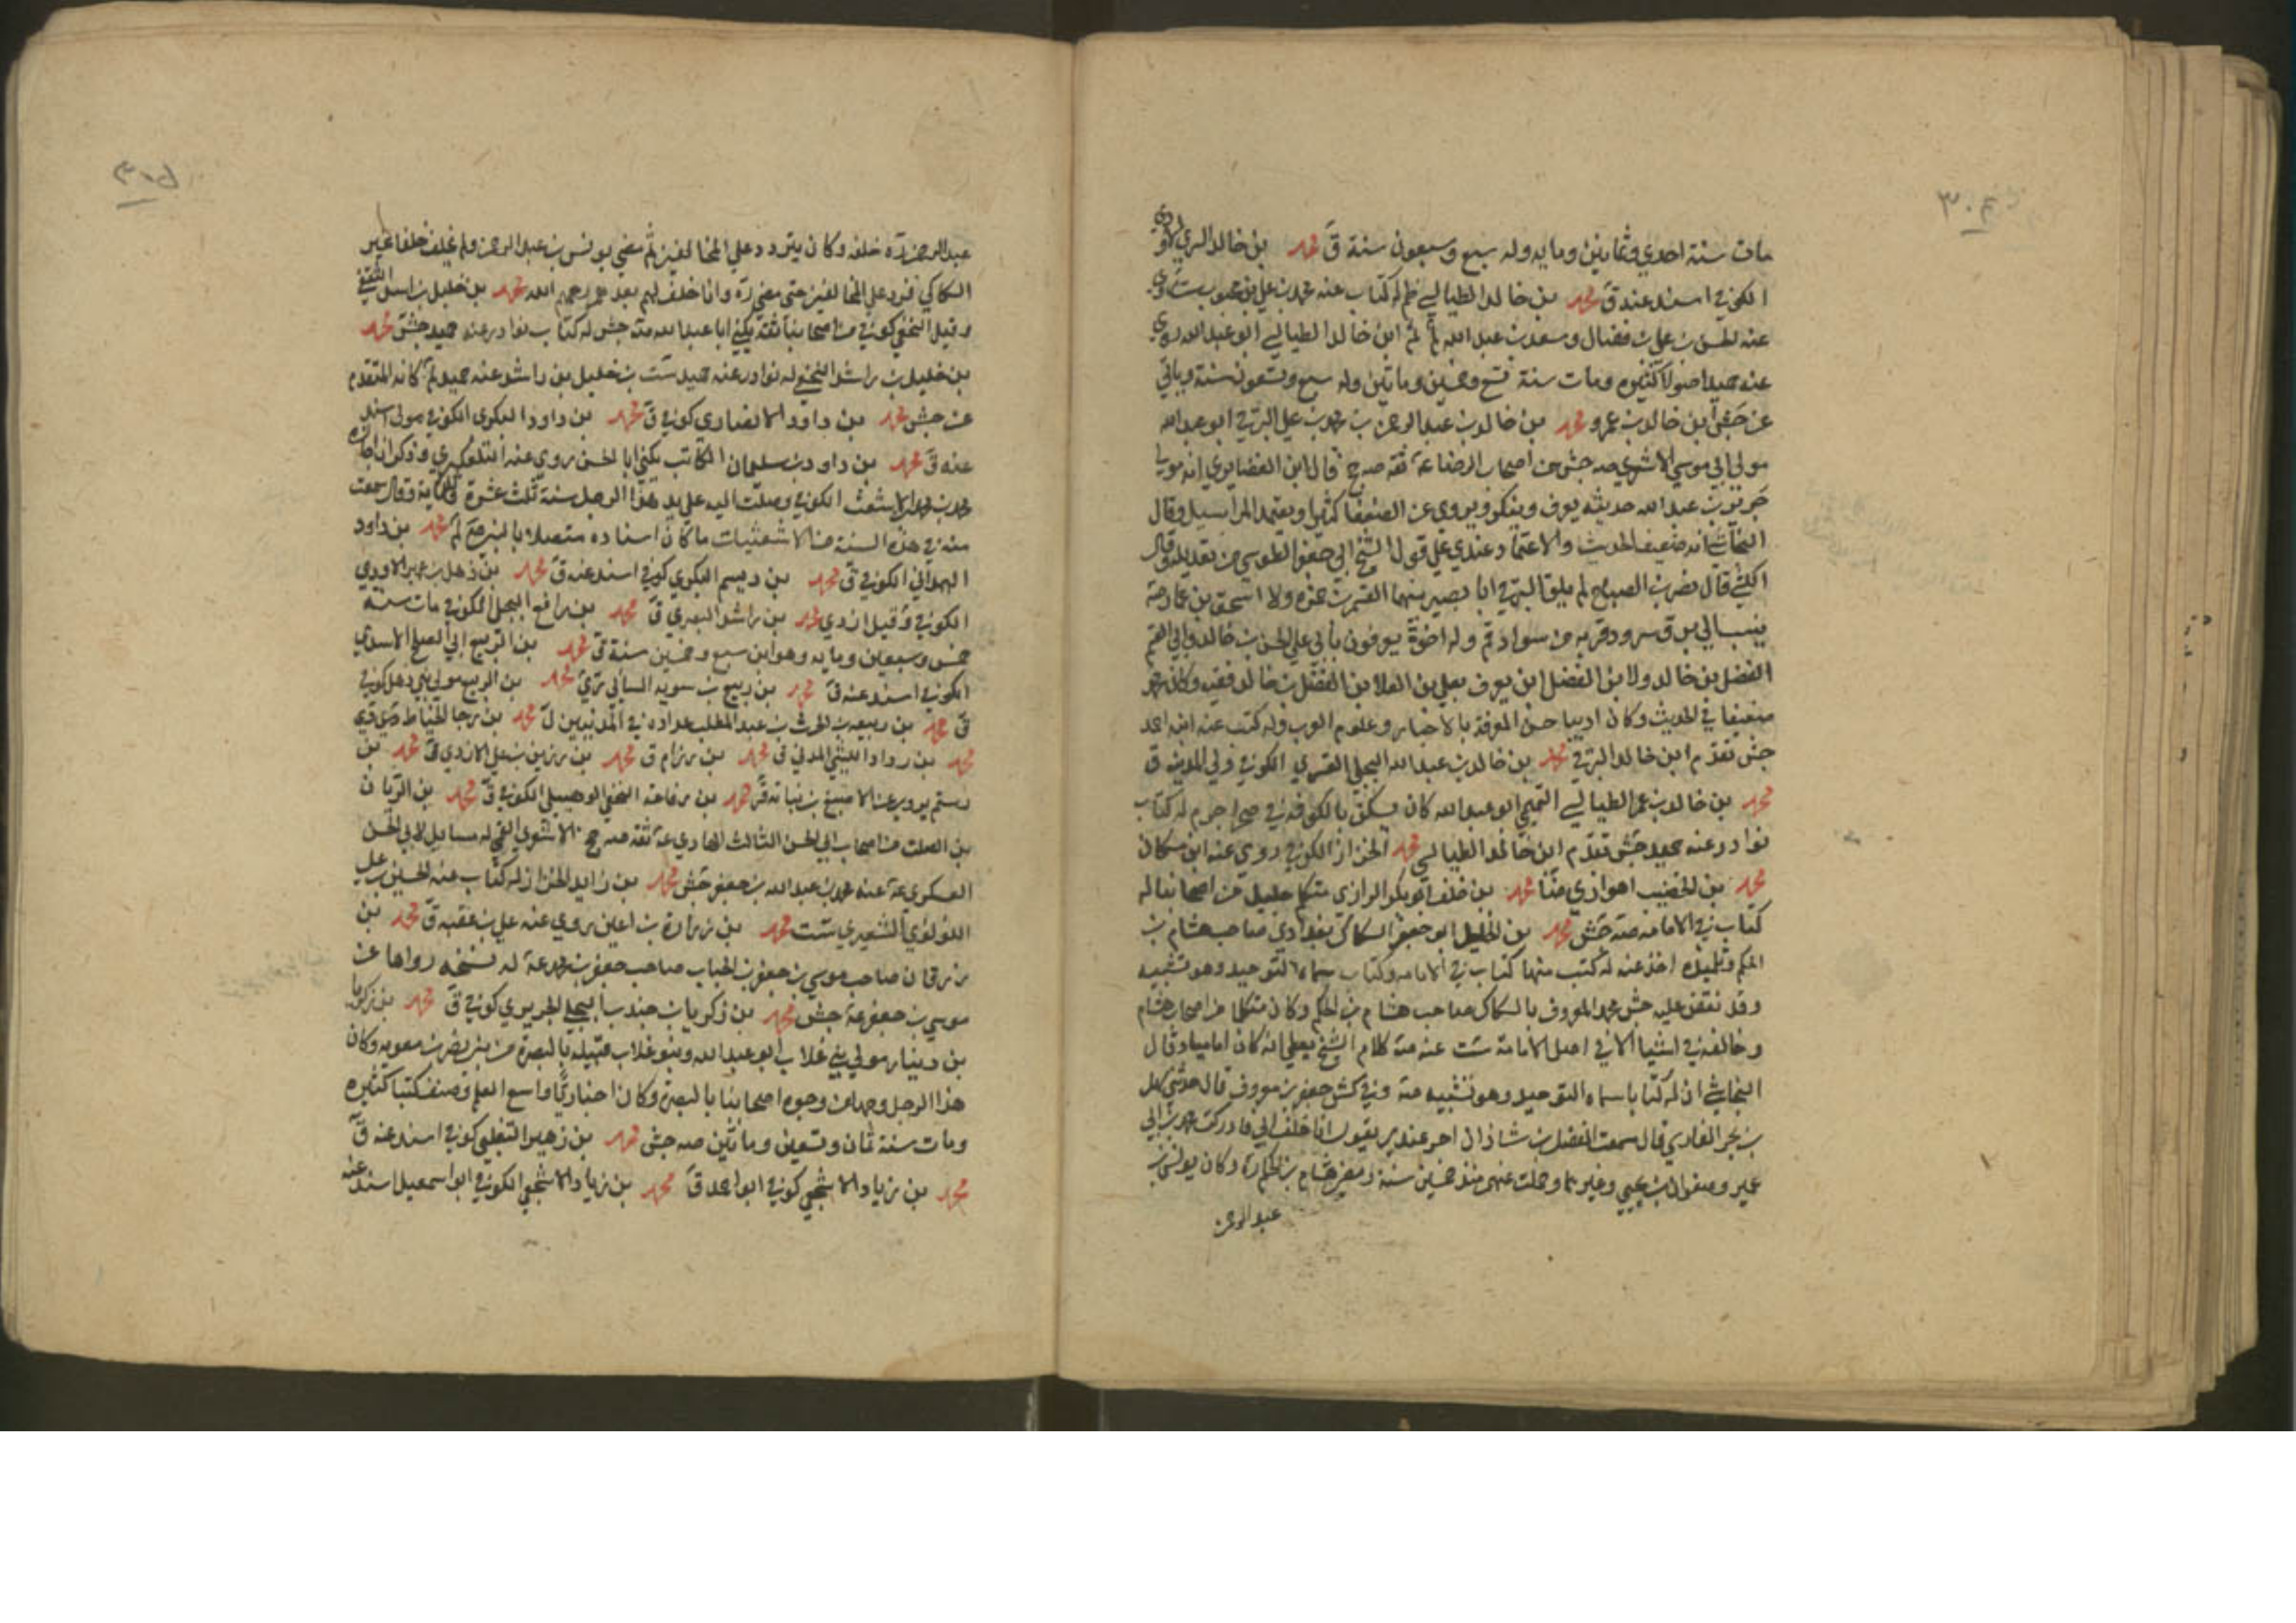 ٣٠٤
مات سنة احدي وثمانين ومايه وله سبع وسبعون سنة ق محمد بن خالد السري الاودي
الكوفي اسند عنه ق محمد بن خالد الطيالسي ظم له كتاب عنه محمد بن علي بن محبوب ست روي
عنه الحسن بن علي بن فضال وسعد بن عبد الله لم ابن خالد الطيالسي ابو عبد الله روي
عنه حميد اصولا كثيرة ومات سنة تسع وخمسين ومائتين وله سبع وتسعون سنة وياتي
عن جش ابن خالد بن عمرو محمد بن خالد بن عبد الرحمن بن محمد بن علي البرقي ابو عبد الله
مولي ابي موسي الاشعري صه جش من اصحاب الرضا ع ثقة صه ج قال ابن الغضايري انه مولي
جرير بن عبد الله حديثه يعرف وينكر ويروي عن الضعفا كثيرا ويعتمد المراسيل وقال
النجاشي انه ضعيف الحديث والاعتماد عندي علي قول الشيخ ابي جعفر الطوسي من تعديله وقال
الكشي قال نصر بن الصباح لم يلق البرقي ابا بصير بينهما القسم بن حمزه ولا اسحق بن عمار صه
ينسب الي برق رود قريه من سواد قم وله اخوة يعرفون بابي علي الحسن بن خالد وابي القسم
الفضل بن خالد ولابن الفضل ابن يعرف بعلي بن العلا بن الفضل بن خالد فقيه وكان محمد
ضعيفا في الحديث وكان اديبا حسن المعرفة بالاخبار وعلوم العرب وله كتب عنه ابنه احمد
جش تقدم ابن خالد البرقي محمد بن خالد بن عبد الله البجلي القسري الكوفي ولي المدينه ق
محمد بن خالد بن عمر الطيالسي التميمي ابو عبد الله كان يسكن بالكوفه في صحرا جرم له كتاب
نوادر عنه حميد جش تقدم ابن خالد الطيالسي محمد الخزاز الكوفي روي عنه ابن مسكان
محمد بن الخضيب اهوازي ضا محمد بن خلف ابو بكر الرازي متكلم جليل من اصحابنا له
كتاب في الامامه صه جش محمد بن الخليل ابو جعفر السكاك بغدادي صاحب هشام بن
الحكم وتلميذه اخذ عنه له كتب منها كتاب في الامامه وكتاب سماه التوحيد وهو تشبيه
وقد نقض عليه جش محمد المعروف بالسكاك صاحب هشام بن الحكم وكان متكلما من اصحاب هشام
وخالفه في اشيا الا في اصل الامامة ست عنه صه كلام الشيخ يعطي انه كان اماميا وقال
النجاشي ان له كتابا سماه التوحيد وهو تشبيه صه وفي كش جعفر بن معروف قال حدثني سهل
بن بحر الفارسي قال سمعت الفضل بن شاذان اخر عهدي به يقول انا خلف لمن مضي ادركت محمد بن ابي
عمير وصفوان بن يحيي وغيرهما وحملت عنهم منذ خمسين سنة ومضي هشام بن الحكم ره وكان يونس بن
عبد الرحمن
٣٠٥
عبد الرحمن ره خلفه وكان يتردد علي المخالفين ثم مضي يونس بن عبد الرحمن ولم يخلف خلفا غير
السكاك فرد علي المخالفين حتي مضي ره وانا خلف لهم بعدهم رحمهم الله محمد بن خليل بن اسد الثقفي
وقيل النخعي كوفي من اصحابنا ثقة يكني ابا عبد الله صه جش له كتاب نوادر عنه حميد جش محمد
بن خليل بن راشد النخعي له نوادر عنه حميد ست بن خليل بن راشد عنه حميد لم كانه المتقدم
عن جش محمد بن داود الانصاري كوفي ق محمد بن داود البكري الكوفي مولي اسند
عنه ق محمد بن داود بن سليمان الكاتب يكني ابا الحسن روي عنه التلعكبري وذكر ان اجازة
محمد بن محمد الاشعث الكوفي وصلت اليه علي يد هذا الرجل سنة ثلث عشرة وثلثماية وقال سمعت
منه في هذه السنة من الاشعثيات ما كان اسناده متصلا بالنبي ص لم محمد بن داود
الهمداني الكوفي ق محمد بن ديسم البكري كوفي اسند عنه ق محمد بن ذهل بن عمير الاودي
الكوفي وقيل ازدي محمد بن راشد البصري ق محمد بن رافع البجلي الكوفي مات سنه
خمس وسبعين ومايه وهو ابن سبع وخمسين سنة ق محمد بن الربيع ابي الصلح الاسدي
الكوفي اسند عنه ق محمد بن ربيع بن سويد السائي ري محمد بن الربيع مولي بني ذهل كوفي
ق محمد بن ربيعه بن الحرث بن عبد المطلب عداده في المدنيين ل محمد بن رجا الخياط
محمد بن رواد الليثي المدني ق محمد بن رزام ق محمد بن رزين بن علي الازدي ق محمد بن
رستم يروي عن الاصبغ بن نباته قر محمد بن رفاعه النخعي الوهبيلي الكوفي ق محمد بن الريان
بن الصلت من اصحاب ابي الحسن الثالث الهادي ع ثقة صه ج الاشعري القمي له مسايل لابي الحسن
العسكري ع عنه محمد بن عبد الله بن جعفر جش محمد بن زايد الخزاز له كتاب عنه الحسين بن علي
اللؤلؤي الشعيري ست محمد بن زراره بن اعين روي عنه علي بن عقبه ق محمد بن
زرقان صاحب موسي بن جعفر بن الحباب صاحب جعفر بن محمد ع له نسخه رواها عن
موسي بن جعفر ع جش محمد بن زكريا بن جندب البجلي الجريري كوفي ق محمد بن زكريا
بن دينار مولي بني غلاب ابو عبد الله وبنو غلاب قبيلة بالبصرة من بني نصر بن معويه وكان
هذا الرجل وجها من وجوه اصحابنا بالبصرة وكان اخباريا واسع العلم وصنف كتبا كثيره
ومات سنة ثمان وتسعين ومائتين صه جش محمد بن زهير التغلبي كوفي اسند عنه ق
محمد بن زياد الاشجعي كوفي ابو احمد ق محمد بن زياد الاشجعي الكوفي ابو اسمعيل اسند عنه